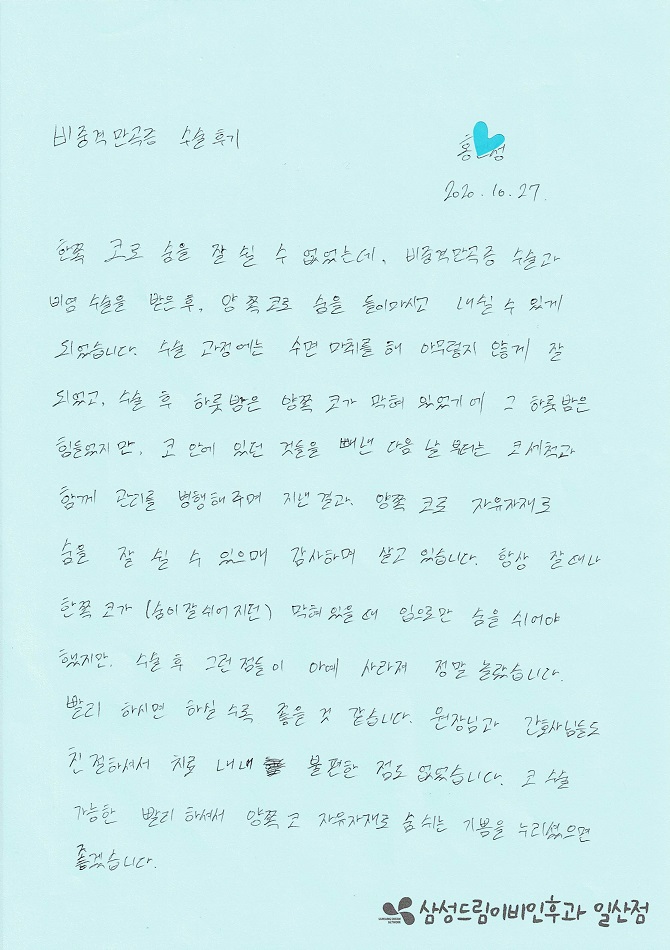 비중격만곡증 수술 후기
홍 성
2020.10.27.
한쪽 코로 숨을 잘 쉴 수 없었는데, 비중격만곡증 수술과
비염 수술을 받은 후, 양쪽 코로 숨을 들이마시고 내쉴 수 있게
되었습니다. 수술 과정에는 수면 마취를 해 아무렇지 않게 잘
되었고, 수술 후 하룻밤은 양쪽 코가 막혀 있었기에 그 하룻밤은
힘들었지만, 코 안에 있던 것들을 빼낸 다음 날 부터는 코세척과
함께 관리를 병행해주며 지낸 결과, 양쪽 코로 자유자재로
숨을 잘 쉴 수 있으매 감사하며 살고 있습니다. 항상 잘 때나
한쪽 코가 (숨이 잘 쉬어지던) 막혀있을 때 입으로만 숨을 쉬어야
했지만, 수술 후 그런 점들이 아예 사라져 정말 놀랐습니다.
빨리 하시면 하실 수록 좋을 것 같습니다. 원장님과 간호사님들도
친절하셔서 치료 내내 불편한 점도 없었습니다. 코 수술
가능한 빨리 하셔서 양쪽 코 자유자재로 숨 쉬는 기쁨을 누리셨으면
좋겠습니다.
삼성드림이비인후과 일산점